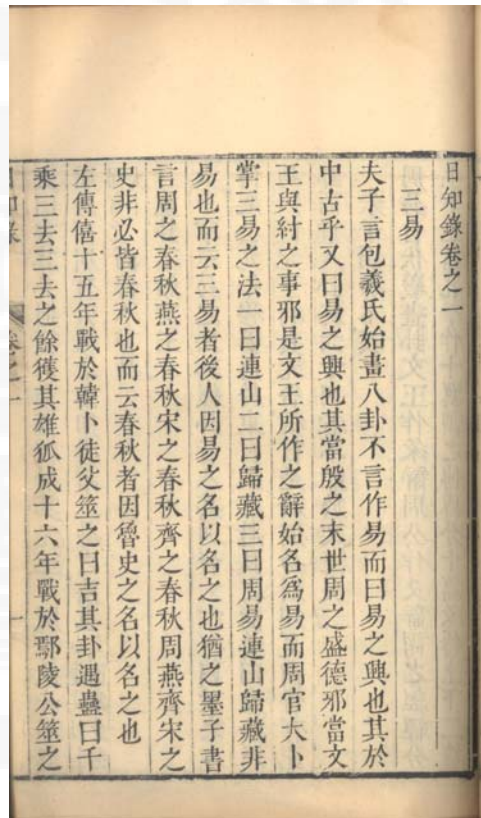 日知錄卷之一
三易
夫子言包羲氏始畫八卦不言作易而曰易之興也其於
中古乎又曰易之興也其當殷之末世周之盛德邪當文
王與紂之事邪是文王所作之辭始名爲易而周官大卜
掌三易之法一曰連山二曰歸藏三曰周易連山歸藏非
易也而云三易者後人因易之名以名之也猶之墨子書
言周之春秋燕之春秋宋之春秋齊之春秋周燕齊宋之
史非必皆春秋也而云春秋者因魯史之名以名之也
左傳僖十五年戰於韓卜徒父筮之曰吉其卦遇蠱曰千
乘三去三去之餘獲其雄狐成十六年戰於鄢陵公筮之
日知錄
卷之一
一